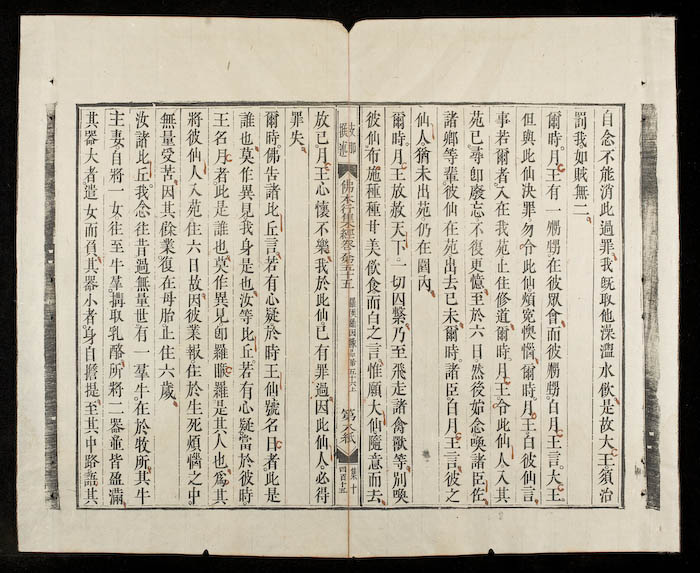 自念不能消此過罪我既取他澡灌水飲是故大王須治
罰我如賊無二
爾時月王有一甥在彼眾會而彼甥白月王言大王
但與此仙決罪勿令此仙煩寃懊惱爾時月王白彼仙言
事若爾者入在我苑止住修道爾時月王令此仙人入其
苑已尋即廢忘不復更憶至於六日然後始念喚諸臣佐
諸卿等輩彼仙在苑出去已未爾時諸臣白月王言彼之
仙人猶未出苑仍在園內
爾時月王放赦天下一切囚繫乃至飛走諸禽獸等別喚
彼仙布施種種甘美飲食而白之言惟願大仙隨意而去
支那
撰述
佛本行集經卷第五十五
羅睺羅因緣品第五十六上
第八紙
集十
四百十五
放已月王心懷不樂我於此仙已有罪過因此仙人必得
罪失
爾時佛告諸比丘言若有心疑於時王仙號名日者此是
誰也莫作異見我身是也汝等比丘若有心疑當於彼時
王名月者此是誰也莫作異見即羅睺羅是其人也為其
將彼仙人入苑住六日故因彼業報住於生死煩惱之中
無量受苦因其餘業復在母胎止住六歲
汝諸比丘我念往昔過無量世有一羣牛在於牧所其牛
主妻自將一女往至牛羣搆取乳酪所將二器並皆盈滿
其器大者遣女而負其器小者身自擔提至其中路語其